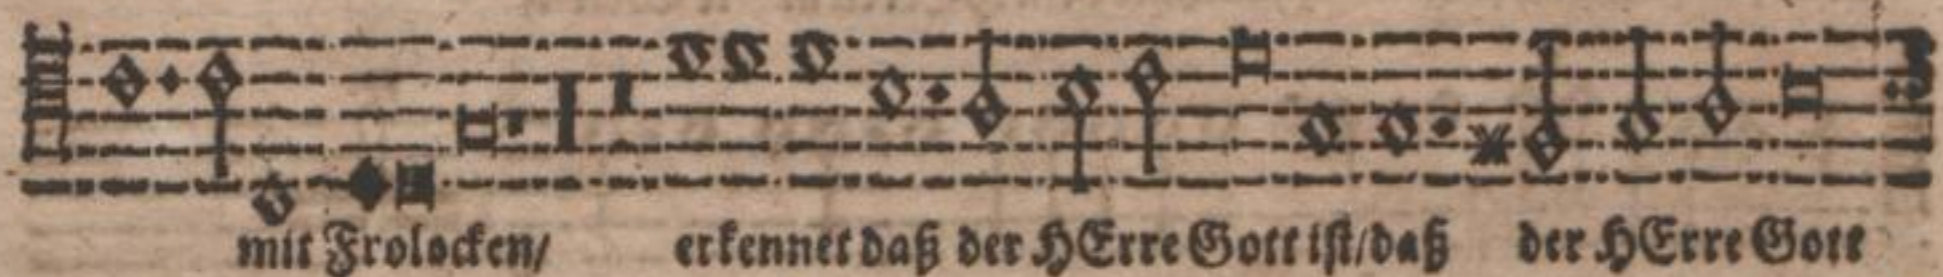 mit Frolocken/ erkennet daß der HErre Gott ist/daß der HErre Gott